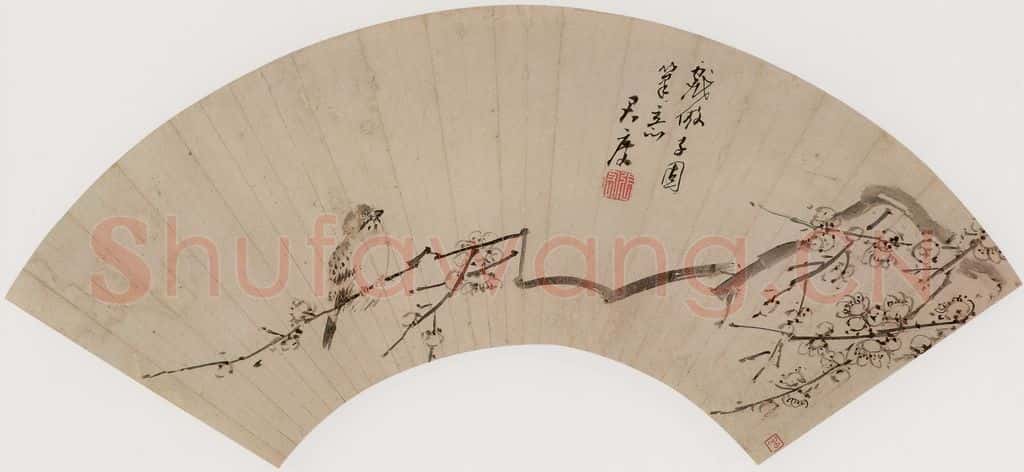 戲倣子固
筆意
君度
Shufawang.CN